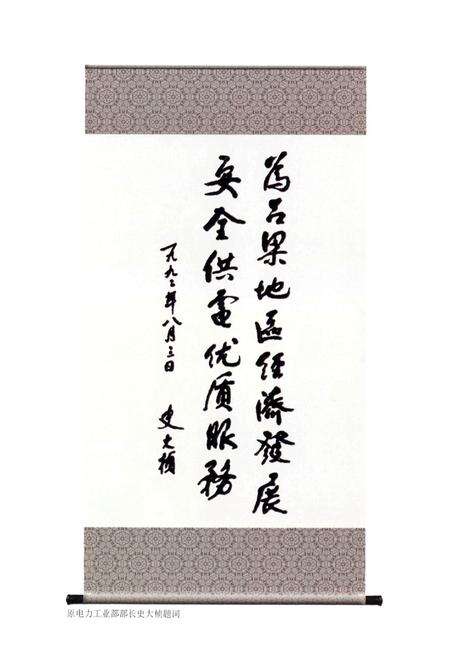 為吕梁地區经濟發展
安全供電优质服務
一九九三年八月三日
史大桢
原电力工业部部长史大桢题词